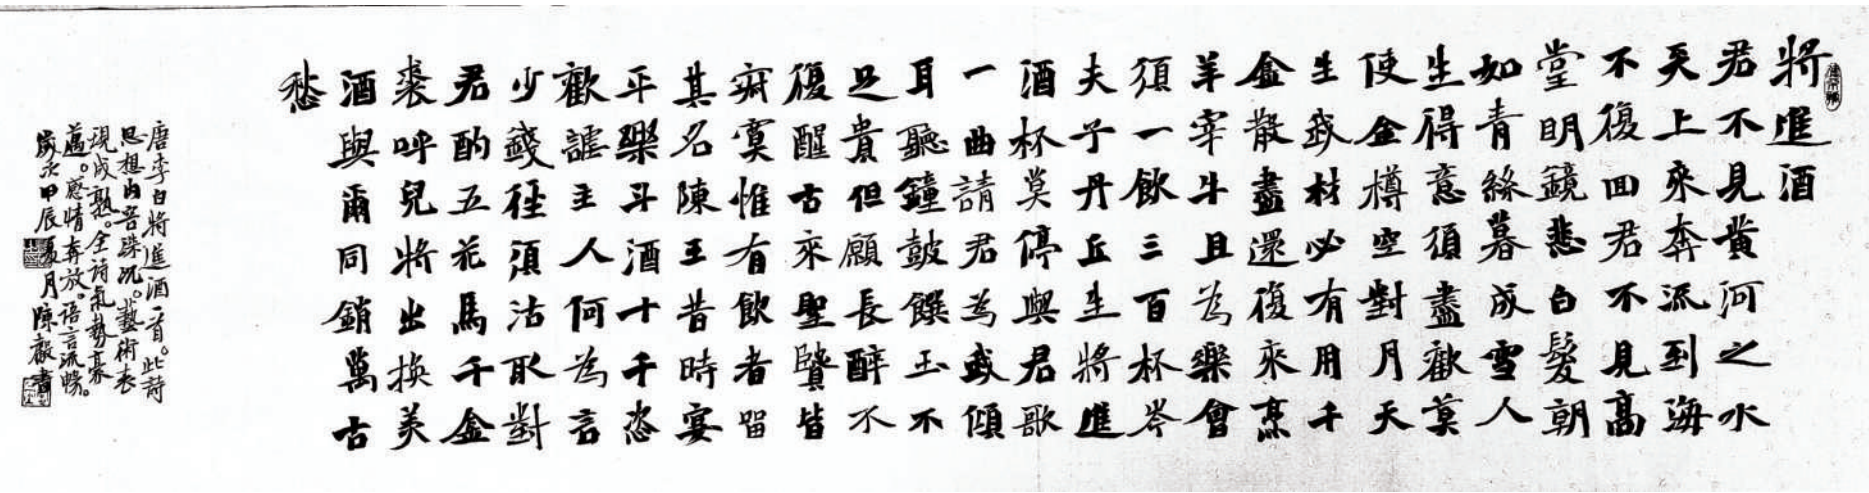 將進酒
君不見黃河之水
天上來奔流到海
不復回君不見高
堂明鏡悲白髮朝
如青絲暮成雪人
生得意須盡歡莫
使金樽空對月天
生我材必有用千
金散盡還復來烹
羊宰牛且為樂會
須一飲三百杯岑
夫子丹丘生將進
酒杯莫停與君歌
一曲請君為我傾
耳聽鐘鼓饌玉不
足貴但願長醉不
復醒古來聖賢皆
寂寞惟有飲者留
其名陳王昔時宴
平樂斗酒十千恣
歡謔主人何為言
少錢徑須沽取對
君酌五花馬千金
裘呼兒將出換美
酒與爾同銷萬古
愁
唐李白將進酒一首。此詩
思想内容深沉。藝術表
現成熟。全詩氣勢豪
邁。感情奔放。語言流暢。
歲次甲辰夏月陳毅書